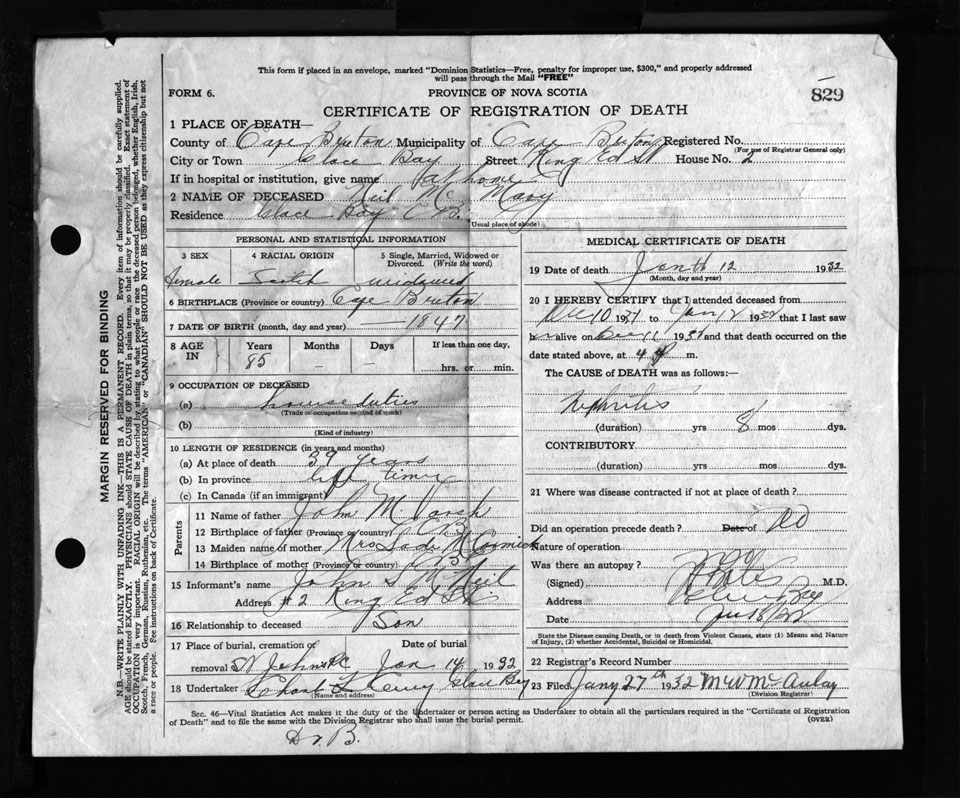 This form if placed in an envelope, marked "Dominion Statistics—Free, penalty for improper use, $300," and properly addressed
will pass through the Mail "FREE"
FORM 6.
PROVINCE OF NOVA SCOTIA
829
CERTIFICATE OF REGISTRATION OF DEATH
1 PLACE OF DEATH—
County of Cape Breton Municipality of Cape Breton Registered No.
(For use of Registrar General only)
City or Town Glace Bay Street King Ed St House No. 2
If in hospital or institution, give name at home
2 NAME OF DECEASED Neil Mc Mary
Residence Glace Bay C B.
(Usual place of abode)
PERSONAL AND STATISTICAL INFORMATION
3 SEX 4 RACIAL ORIGIN 5 Single, Married, Widowed or Divorced. (Write the word)
female Scotch widowed
6 BIRTHPLACE (Province or country) Cape Breton
7 DATE OF BIRTH (month, day and year) 1847
8 AGE IN Years Months Days If less than one day,
85 – – hrs. or min.
9 OCCUPATION OF DECEASED
(a) house duties
(Trade or occupation or kind of work)
(b)
(Kind of industry)
10 LENGTH OF RESIDENCE (in years and months)
(a) At place of death 39 years
(b) In province life time
(c) In Canada (if an immigrant)
Parents
11 Name of father John M
12 Birthplace of father (Province or country) C B
13 Maiden name of mother Mrs McCormick
14 Birthplace of mother (Province or country) C B
15 Informant's name John S McNeil
Address #2 King Ed St
16 Relationship to deceased Son
17 Place of burial, cremation or removal St Johns Date of burial Jan 14 1932
18 Undertaker Glace Bay
(Name and address)
MEDICAL CERTIFICATE OF DEATH
19 Date of death Janth 12 1932
(Month, day and year)
20 I HEREBY CERTIFY that I attended deceased from
Dec 10 1931 to Jan 12 1932 that I last saw
h alive on 193 and that death occurred on the
date stated above, at 4 m.
The CAUSE of DEATH was as follows:—
Nephritis
(duration) yrs 8 mos dys.
CONTRIBUTORY
(duration) yrs mos dys.
21 Where was disease contracted if not at place of death?
Did an operation precede death? Date of No
Nature of operation
Was there an autopsy?
(Signed) M.D.
Address Glace Bay
Date
State the Disease causing Death, or in death from Violent Causes, state (1) Means and Nature
of Injury, (2) whether Accidental, Suicidal or Homicidal.
22 Registrar's Record Number
23 Filed Jany 27th 1932 McAulay
(Division Registrar)
Sec. 46—Vital Statistics Act makes it the duty of the Undertaker or person acting as Undertaker to obtain all the particulars required in the "Certificate of Registration
of Death" and to file the same with the Division Registrar who shall issue the burial permit.
(OVER)
Dr. B.
MARGIN RESERVED FOR BINDING
N.B.—WRITE PLAINLY WITH UNFADING INK—THIS IS A PERMANENT RECORD. Every item of information should be carefully supplied.
AGE should be stated EXACTLY. PHYSICIANS should STATE CAUSE OF DEATH in plain terms, so that it may be properly classified. Exact statement of
OCCUPATION is very important. RACIAL ORIGIN will be described by stating to what people or race the deceased person belonged, whether English, Irish,
Scotch, French, German, Russian, Ruthenian, etc. The terms "AMERICAN" or "CANADIAN" SHOULD NOT BE USED as they express citizenship but not
a race or people. See instructions on back of Certificate.